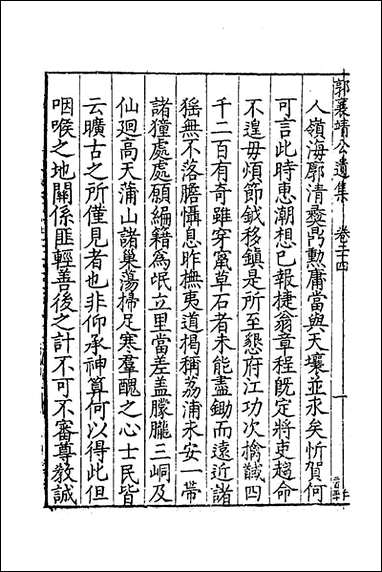 郭襄靖公遺集 卷二十四 一
人嶺海廓清彝鼎勲庸當與天壤並永矣忻賀何
可言此時惠潮想已報捷翁章程既定將吏趨命
不遑毋煩節鉞移鎮是所至懇府江功次擒馘四
千二百有奇雖穿窬草石者未能盡鋤而遠近諸
猺無不落膽懾息昨撫夷道楊稱荔浦永安一帶
諸獞處處願編籍為氓立里當差蓋朦朧三峒及
仙迴高天蒲山諸巢蕩掃足寒羣醜之心士民皆
云曠古之所僅見者也非仰承神算何以得此但
咽喉之地關係匪輕善後之計不可不審尊教誠